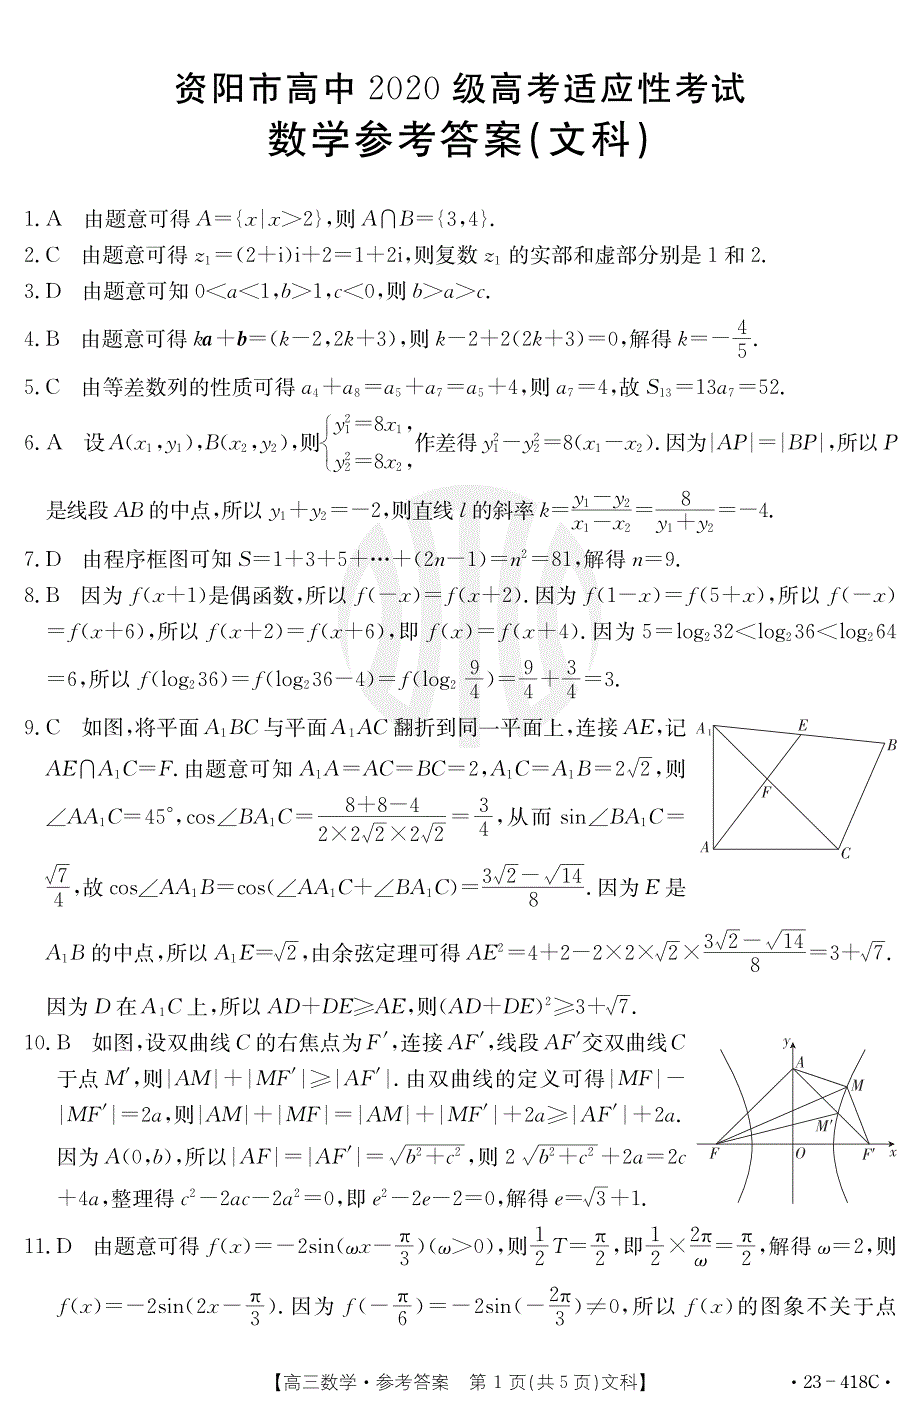 资阳市高中 2020 级高考适应性考试
数学参考答案(文科)
1. A　由题意可得 A={x|x>2},则 A∩B={3,4}.
2. C　由题意可得 z₁=(2+i)i+2=1+2i,则复数 z₁ 的实部和虚部分别是 1 和 2.
3. D　由题意可知 0<a<1,b>1,c<0,则 b>a>c.
4. B　由题意可得 ka+b=(k-2,2k+3),则 k-2+2(2k+3)=0,解得 k=-4/5.
5. C　由等差数列的性质可得 a₄+a₈=a₅+a₇=a₅+4,则 a₇=4,故 S₁₃=13a₇=52.
6. A　设 A(x₁,y₁),B(x₂,y₂),则{y₁²=8x₁, y₂²=8x₂, 作差得 y₁²-y₂²=8(x₁-x₂). 因为|AP|=|BP|,所以 P
是线段 AB 的中点,所以 y₁+y₂=-2,则直线 l 的斜率 k=(y₁-y₂)/(x₁-x₂)=8/(y₁+y₂)=-4.
7. D　由程序框图可知 S=1+3+5+…+(2n-1)=n²=81,解得 n=9.
8. B　因为 f(x+1)是偶函数,所以 f(-x)=f(x+2). 因为 f(1-x)=f(5+x),所以 f(-x)
=f(x+6),所以 f(x+2)=f(x+6),即 f(x)=f(x+4). 因为 5=log₂32<log₂36<log₂64
=6,所以 f(log₂36)=f(log₂36-4)=f(log₂ 9/4)=9/4+3/4=3.
9. C　如图,将平面 A₁BC 与平面 A₁AC 翻折到同一平面上,连接 AE,记
AE∩A₁C=F. 由题意可知 A₁A=AC=BC=2,A₁C=A₁B=2√2,则
∠AA₁C=45°,cos∠BA₁C=(8+8-4)/(2×2√2×2√2)=3/4,从而 sin∠BA₁C=
√7/4,故 cos∠AA₁B=cos(∠AA₁C+∠BA₁C)=(3√2-√14)/8. 因为 E 是
A₁B 的中点,所以 A₁E=√2,由余弦定理可得 AE²=4+2-2×2×√2×(3√2-√14)/8=3+√7.
因为 D 在 A₁C 上,所以 AD+DE≥AE,则(AD+DE)²≥3+√7.
A₁ E B F A C
10. B　如图,设双曲线 C 的右焦点为 F′,连接 AF′,线段 AF′交双曲线 C
于点 M′,则|AM|+|MF′|≥|AF′|. 由双曲线的定义可得|MF|-
|MF′|=2a,则|AM|+|MF|=|AM|+|MF′|+2a≥|AF′|+2a.
因为 A(0,b),所以|AF|=|AF′|=√(b²+c²),则 2√(b²+c²)+2a=2c
+4a,整理得 c²-2ac-2a²=0,即 e²-2e-2=0,解得 e=√3+1.
y A M M′ F O F′ x
11. D　由题意可得 f(x)=-2sin(ωx-π/3)(ω>0),则1/2 T=π/2,即1/2×2π/ω=π/2,解得 ω=2,则
f(x)=-2sin(2x-π/3). 因为 f(-π/6)=-2sin(-2π/3)≠0,所以 f(x)的图象不关于点
【高三数学·参考答案　第 1 页(共 5 页)文科】
·23-418C·